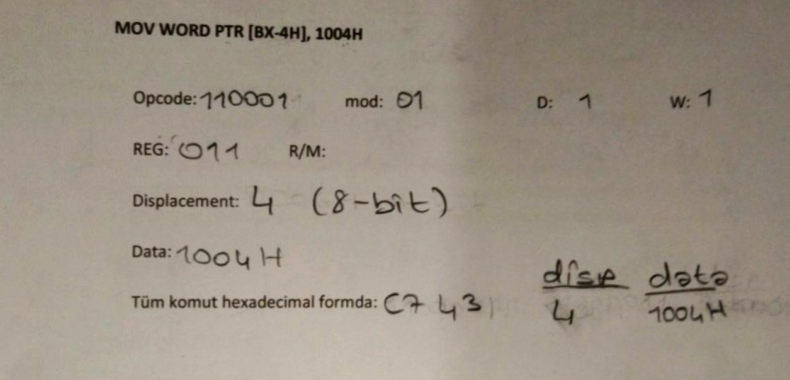 MOV WORD PTR [BX-4H], 1004H
Opcode: 110001 mod: 01 D: 1 W: 1
REG: 011 R/M:
Displacement: 4 (8-bit)
Data: 1004H
disp data
Tüm komut hexadecimal formda: C7 43 4 1004H